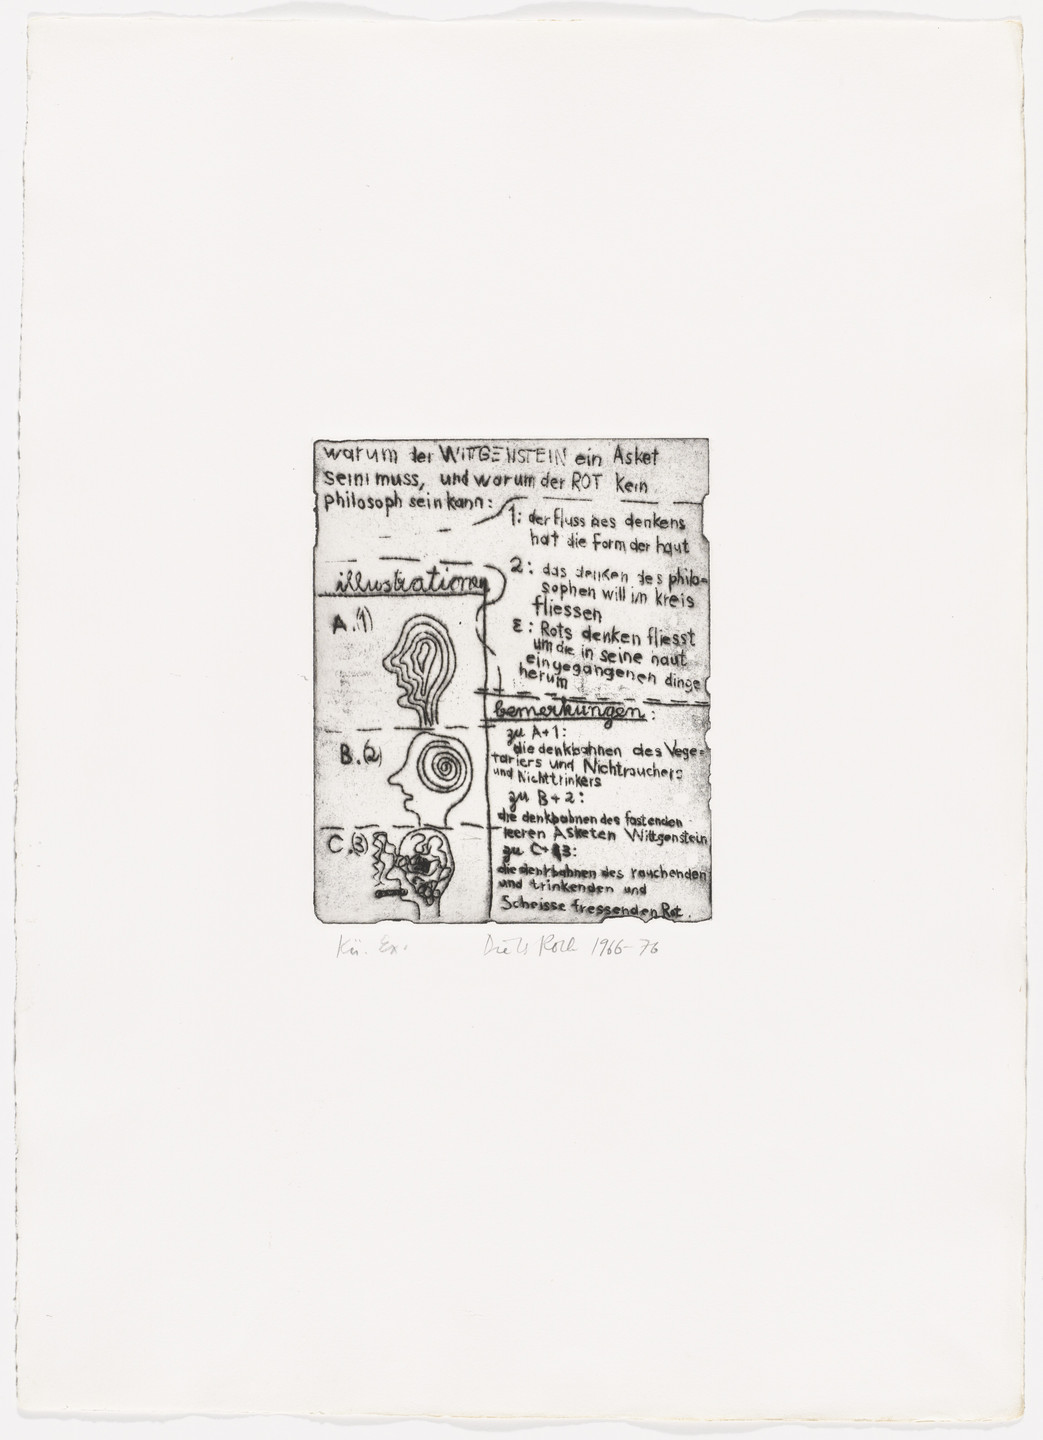 warum der WITTGENSTEIN ein Asket
sein muss, und warum der ROT kein
philosoph sein kann:
1: der fluss des denkens
hat die form der haut
2: das denken des philo-
sophen will im kreis
fliessen
3: Rots denken fliesst
um die in seine haut
eingegangenen dinge
herum
illustrationen
A.(1)
B.(2)
C.(3)
bemerkungen:
zu A+1:
die denkbahnen des Vege-
tariers und Nichtrauchers
und Nichttrinkers
zu B+2:
die denkbahnen des fastenden
leeren Asketen Wittgenstein
zu C+3:
die denkbahnen des rauchenden
und trinkenden und
Scheisse fressenden Rot.
Kü. Ex. Dieter Roth 1966-76